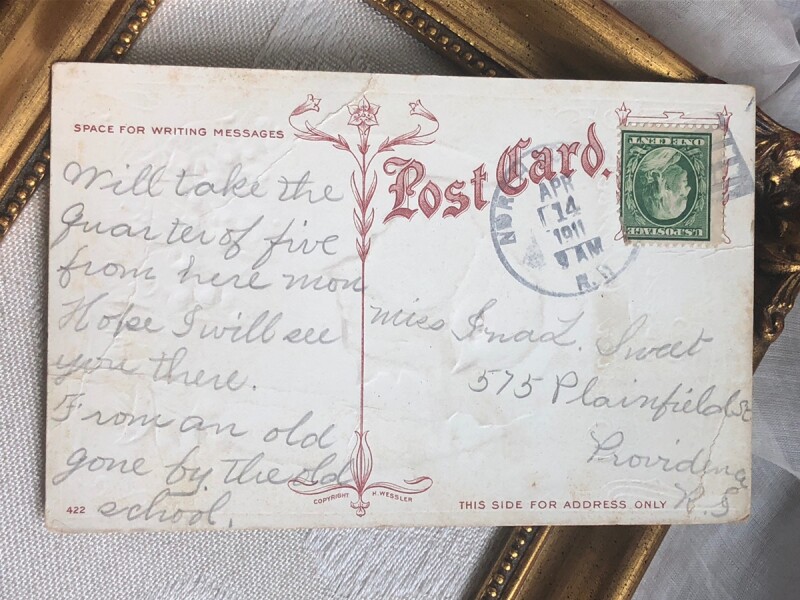 SPACE FOR WRITING MESSAGES
Post Card.
APR
14
1911
9 AM
R.I.
ONE CENT
U.S. POSTAGE
Will take the
quarter of five
from here mon
Hope I will see
you there.
From an old
gone by the old
school.
Miss Ina L. Sweet
575 Plainfield St
Providence
R.I
422
COPYRIGHT H. WESSLER
THIS SIDE FOR ADDRESS ONLY